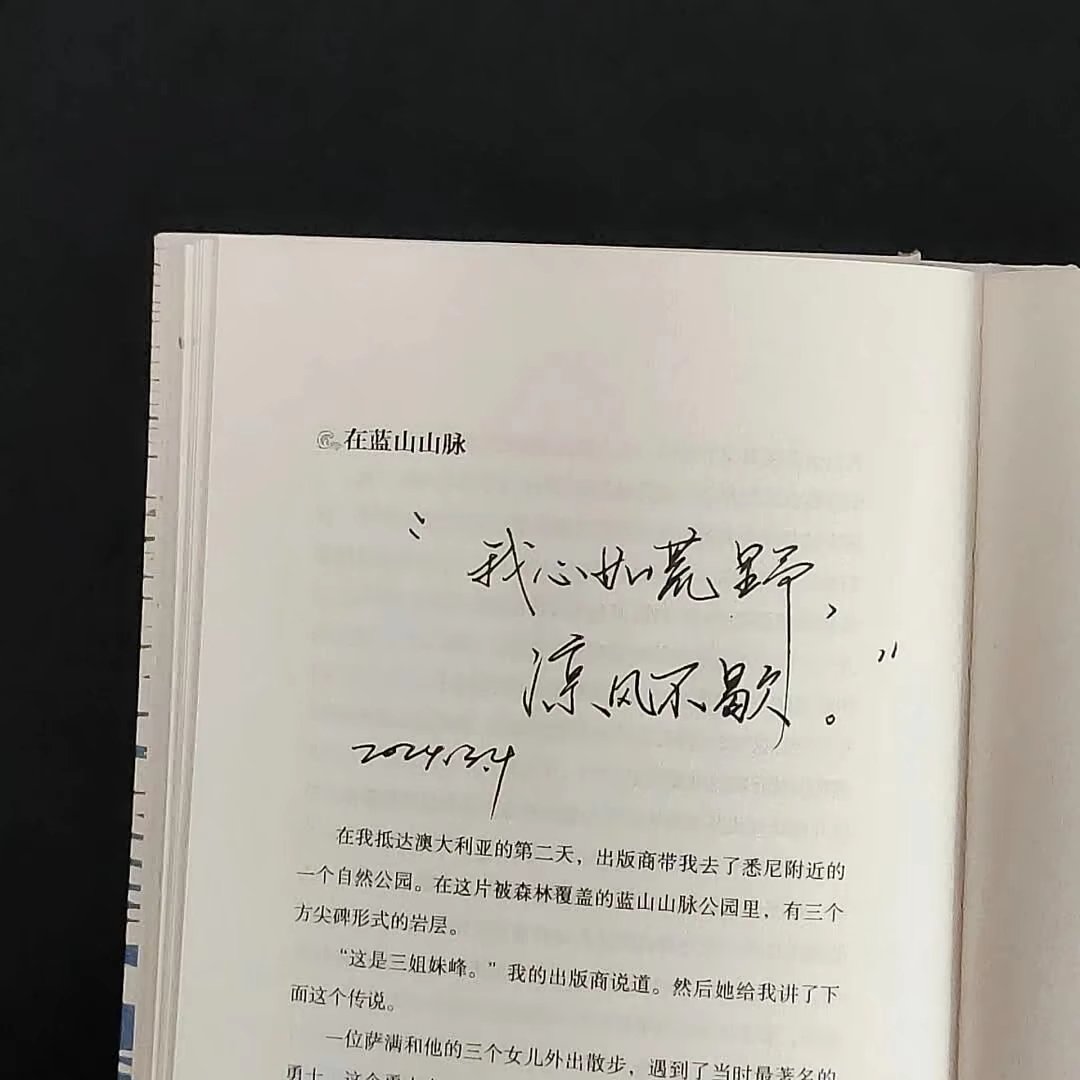 在蓝山山脉
“我心如荒野，
凉风不歇。”
2024.3.4
在我抵达澳大利亚的第二天，出版商带我去了悉尼附近的
一个自然公园。在这片被森林覆盖的蓝山山脉公园里，有三个
方尖碑形式的岩层。
“这是三姐妹峰。”我的出版商说道。然后她给我讲了下
面这个传说。
一位萨满和他的三个女儿外出散步，遇到了当时最著名的
勇士。